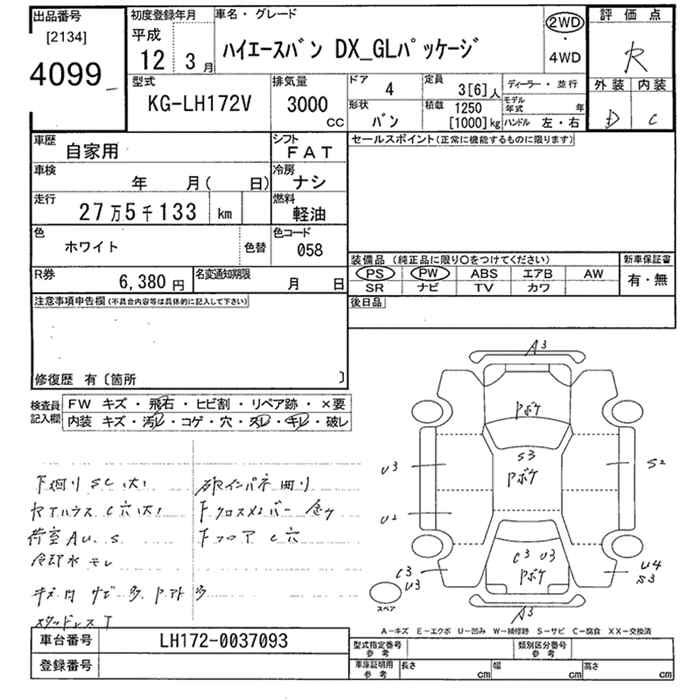 出品番号
[2134]
4099
初度登録年月
平成
12 3月
車名・グレード
ハイエースバン DX_GLパッケージ
2WD
・
4WD
評価点
R
外装 内装
D C
型式
KG-LH172V
排気量
3000 CC
ドア
4
定員
3[6]人
形状
バン
積載 1250
[1000]kg
ディーラー・並行
モデル年式 年
ハンドル 左・右
車歴
自家用
シフト
FAT
車検
年 月( 日)
冷房
ナシ
走行
27万5千133 km
燃料
軽油
色
ホワイト
色替
色コード
058
R券
6,380円
名変通知期限
月 日
セールスポイント(正常に機能するものに限ります)
装備品 (純正品に限り〇をつけてください)
PS PW ABS エアB AW
SR ナビ TV カワ
新車保証書
有・無
後日品
注意事項申告欄(不具合内容等は具体的に記入して下さい)
修復歴 有〔箇所 〕
検査員記入欄
FW キズ・飛石・ヒビ割・リペア跡・×要
内装 キズ・汚レ・コゲ・穴・スレ・キレ・破レ
下廻り SC(大)
荷室 AU.S
冷却水 モレ
Fクロスメンバー
Fフロア C穴
スタッドレスT
A3
Pボケ
S3
Pボケ
U3
U2
S2
C3 U3
Pボケ
C3
U3
U4
S3
A3
スペア
A−キズ E−エクボ U−凹み W−補修跡 S−サビ C−腐食 XX−交換済
車台番号
LH172-0037093
登録番号
型式指定番号
参考
類別区分番号
参考
車庫証明用
参考
長さ cm
幅 cm
高さ cm